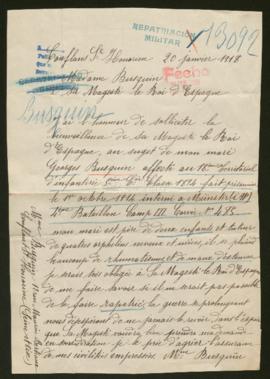 REPATRIACIÓN
MILITAR
13092
Conflans Ste Honorine 20 janvier 1918
Madame Busquin
Sa Majesté le Roi d'Espagne
Busquin
J'ai l'honneur de solliciter la
bienveillance de Sa Majesté le Roi
d'Espagne, au sujet de mon mari
Georges Busquin affecté au 18eme territorial
d'infanterie Classe 1894 fait prisonnier
le 1er octobre 1914 interné à Munster
4eme Bataillon Camp III N° 485
mon mari est père de deux enfants et tuteur
de quatre orphelins neveux et nièces, il se plaint
beaucoup de rhumatismes et de maux
je serais très obligée à Sa Majesté le Roi d'Espagne
de me faire savoir si il me serait possible
de le faire rapatrié la guerre se prolongeant
nous de jamais le revoir dans l'espoir
que Sa Majesté voudra bien prendre ma demande
en considération je le prie d'agréer l'assurance
de mes civilités empressées Mme Busquin
Mme Busquin 11 rue
Conflans Ste Honorine (Seine et Oise)